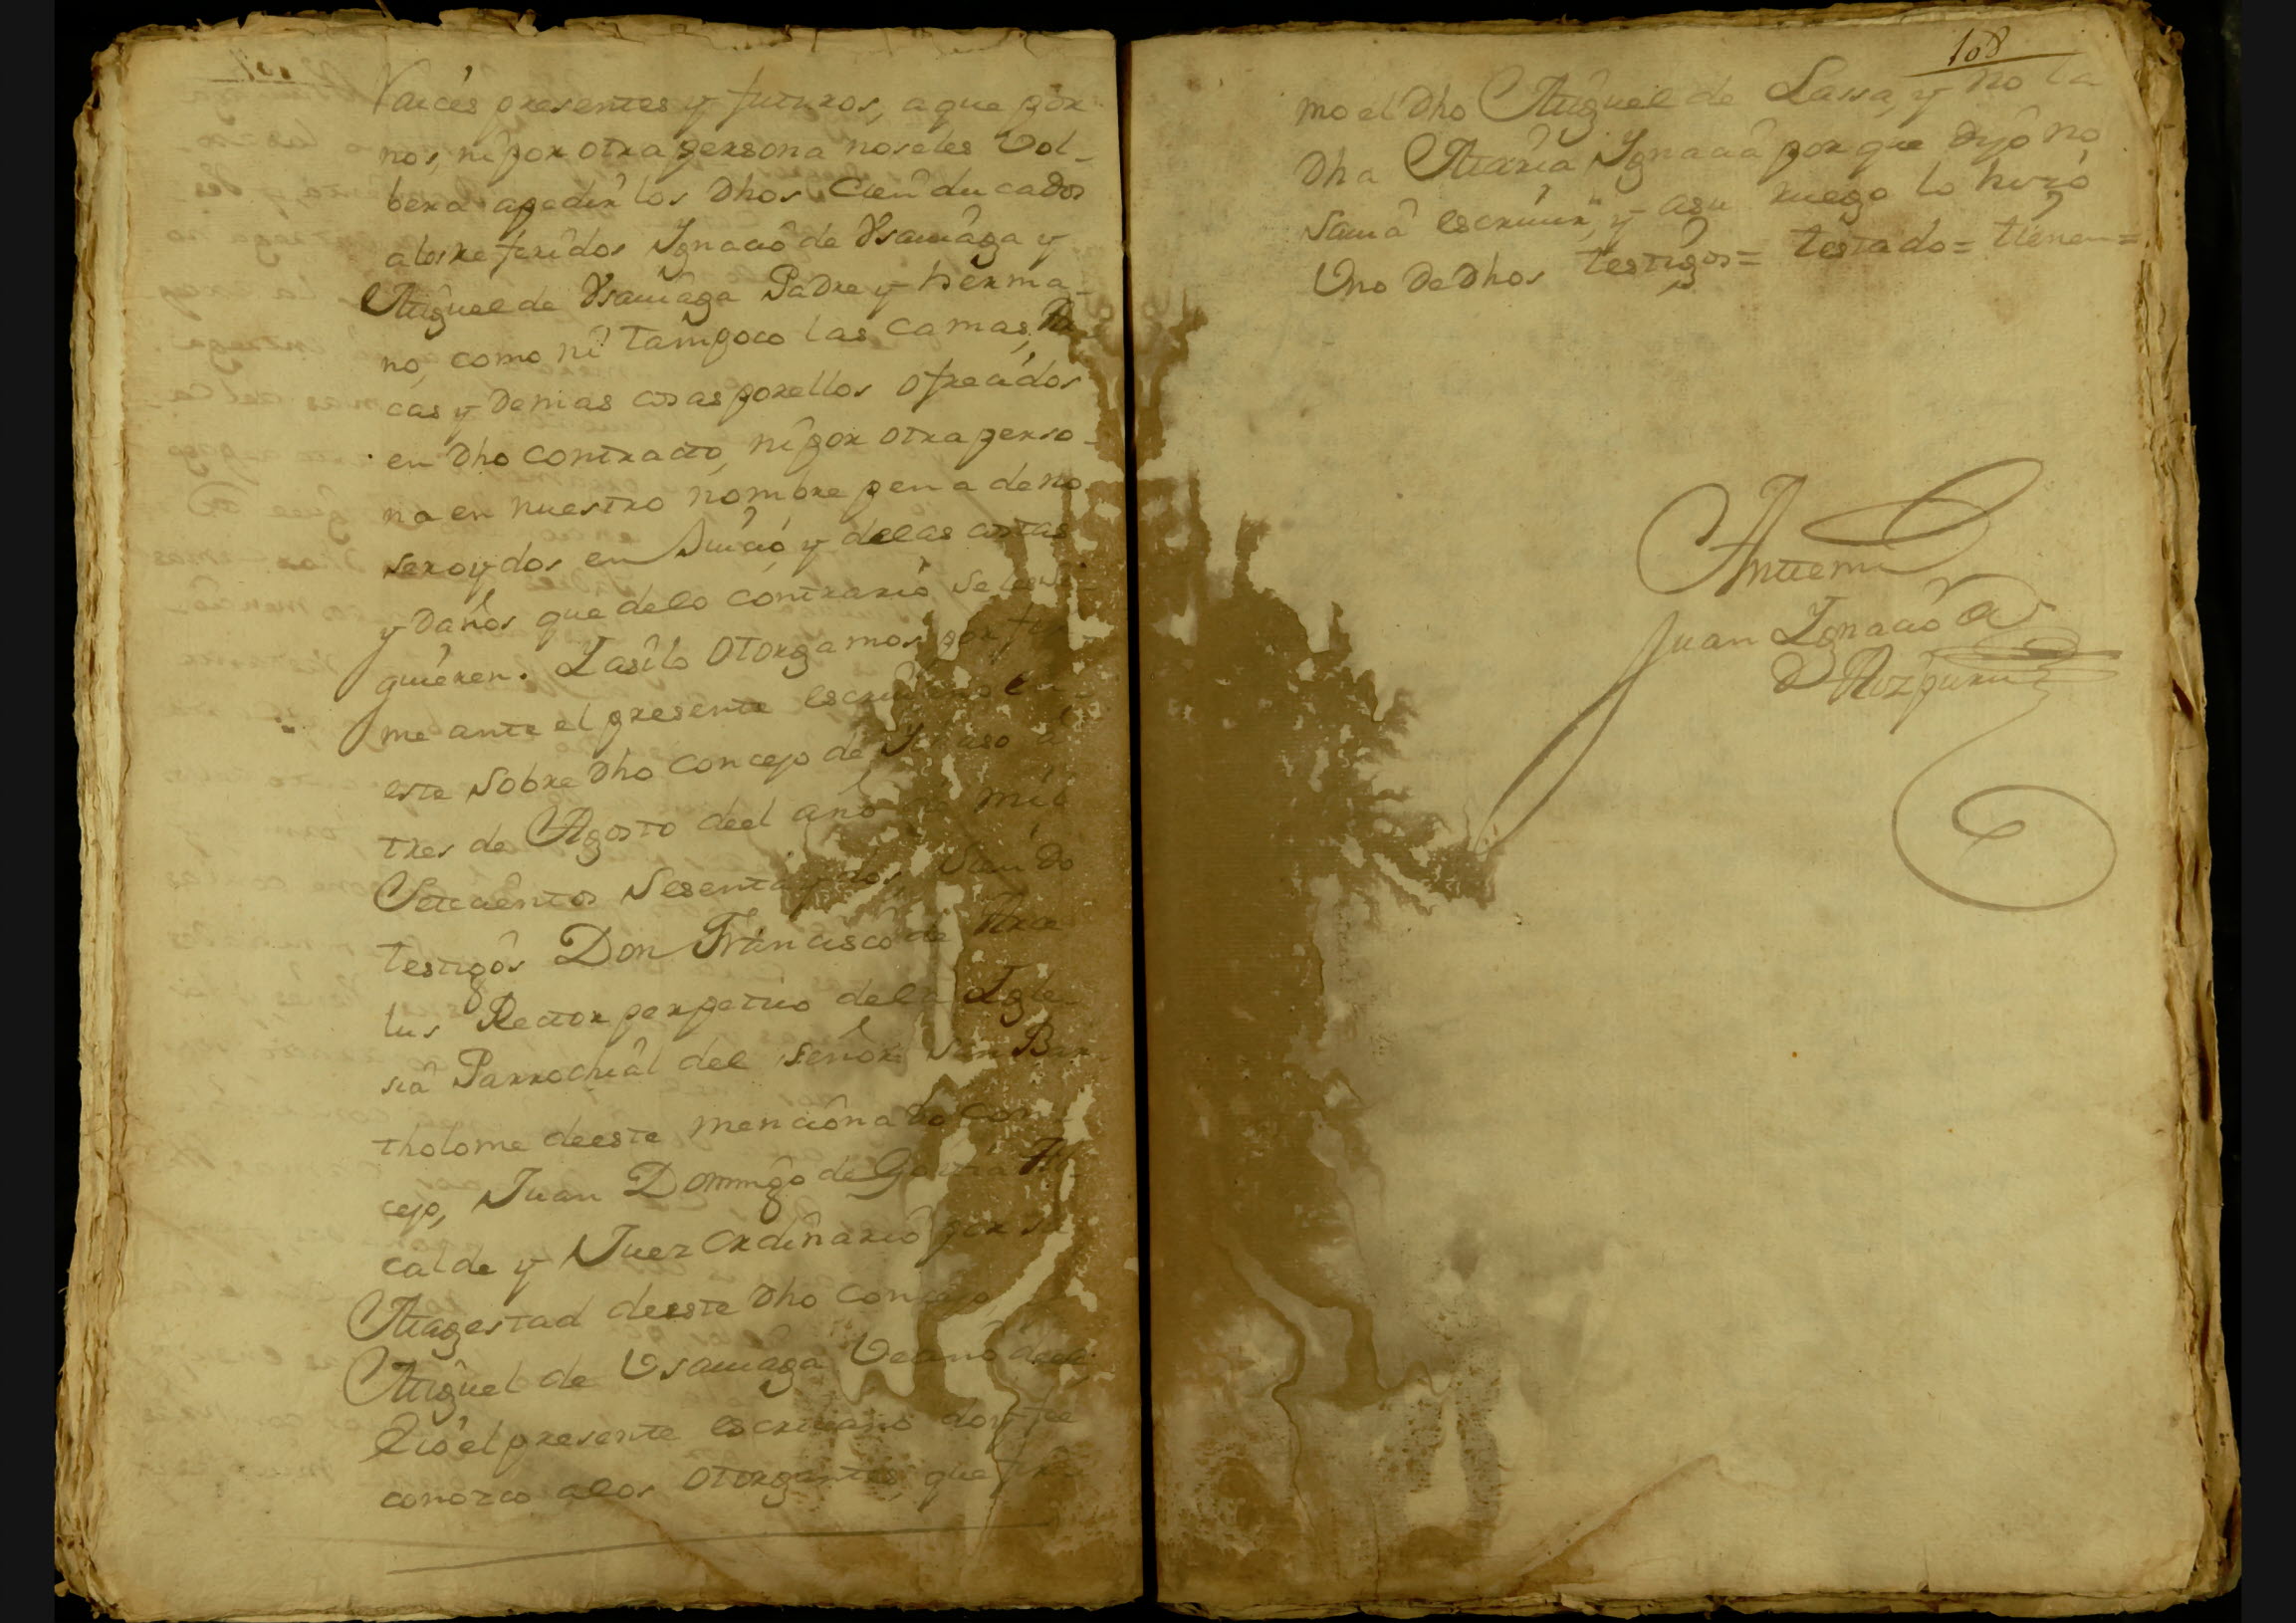 Raices presentes y futuros, a que por
nos, ni por otra persona no seles vol-
bera apedir los dhos Cien ducados
alos referidos Ignacio de Vsauiaga y
Miguel de Vsauiaga Padre y herma-
no, como ni tampoco las camas, Ba
cas y demas cosas por ellos ofrecidos
en dho contracto, ni por otra perso-
na en nuestro nombre pena de no
ser oydos en Juicio, y delas costas
y daños que delo contrario se le si-
guieren. Y asi lo otorgamos por fir
me ante el presente escriuano en
este sobre dho concejo de
tres de Agosto deel año de mil
Setecientos sesenta y dos, siendo
testigos Don Francisco de Arce
lus Rector perpetuo dela Igle-
sia Parrochial del señor San Bar-
tholome deeste mencionado con-
cejo, Juan Domingo de Gauiria Al-
calde y Juez ordinario por su
Magestad deeste dho concejo
Miguel de Vsauiaga Vecino deel:
E io el presente escriuano doy fee
conozco alos otorgantes, que fir-
108
mo el dho Miguel de Lassa, y no la
dha Maria Ignacia por que dijo no
sauia escriuir, y asu ruego lo hizo
Vno de dhos testigos = testado = tienen =
Antemi
Juan Ignacio
D Aizpuru